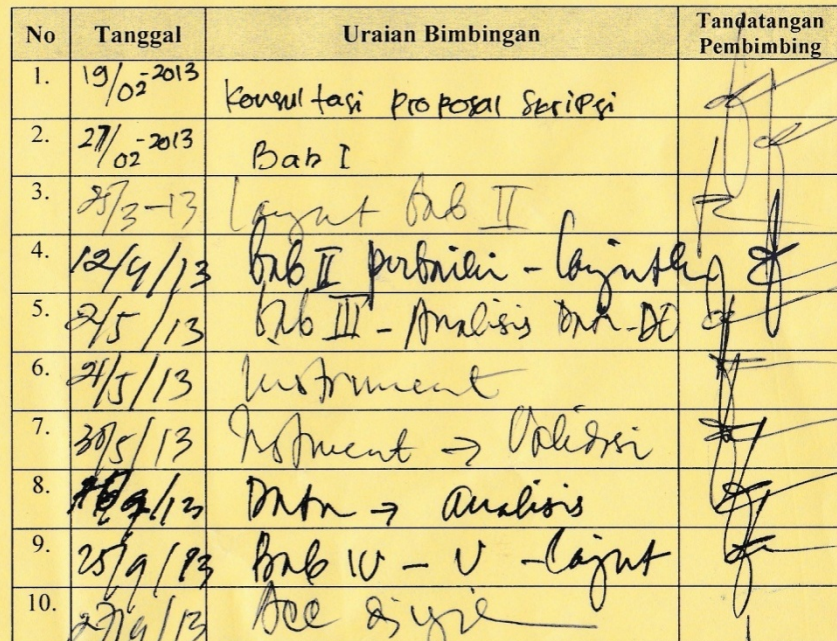 No Tanggal Uraian Bimbingan Tandatangan Pembimbing
1. 19/02-2013 Konsultasi Proposal Skripsi
2. 27/02-2013 Bab I
3. 25/3-13 Lanjut Bab II
4. 12/4/13 Bab II perbaiki - Lanjutkan
5. 2/5/13 Bab III - Analisis Data-DO
6. 21/5/13 Instrument
7. 30/5/13 Instrument → Validasi
8. /13 Data → Analisis
9. 25/9/13 Bab IV - V - Lanjut
10. 27/9/13 Acc